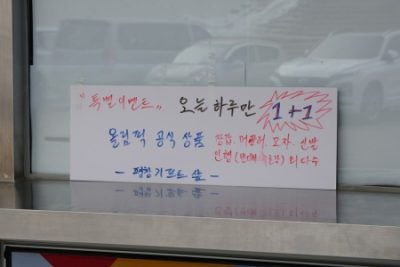 "특별이벤트" 오늘 하루만 1+1
올림픽 공식 상품 장갑. 머플러. 모자. 양말
인형(반다비 수호랑) 외 다수
- 평창 기프트 샵 -